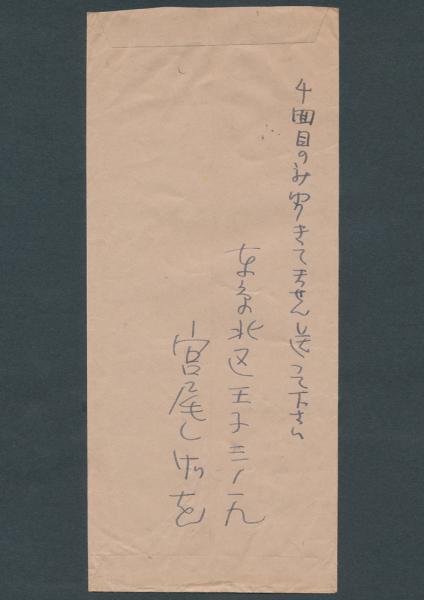 4面目のみ届きてません送って下さい
東京北区王子三ノ一九
宮尾しげを